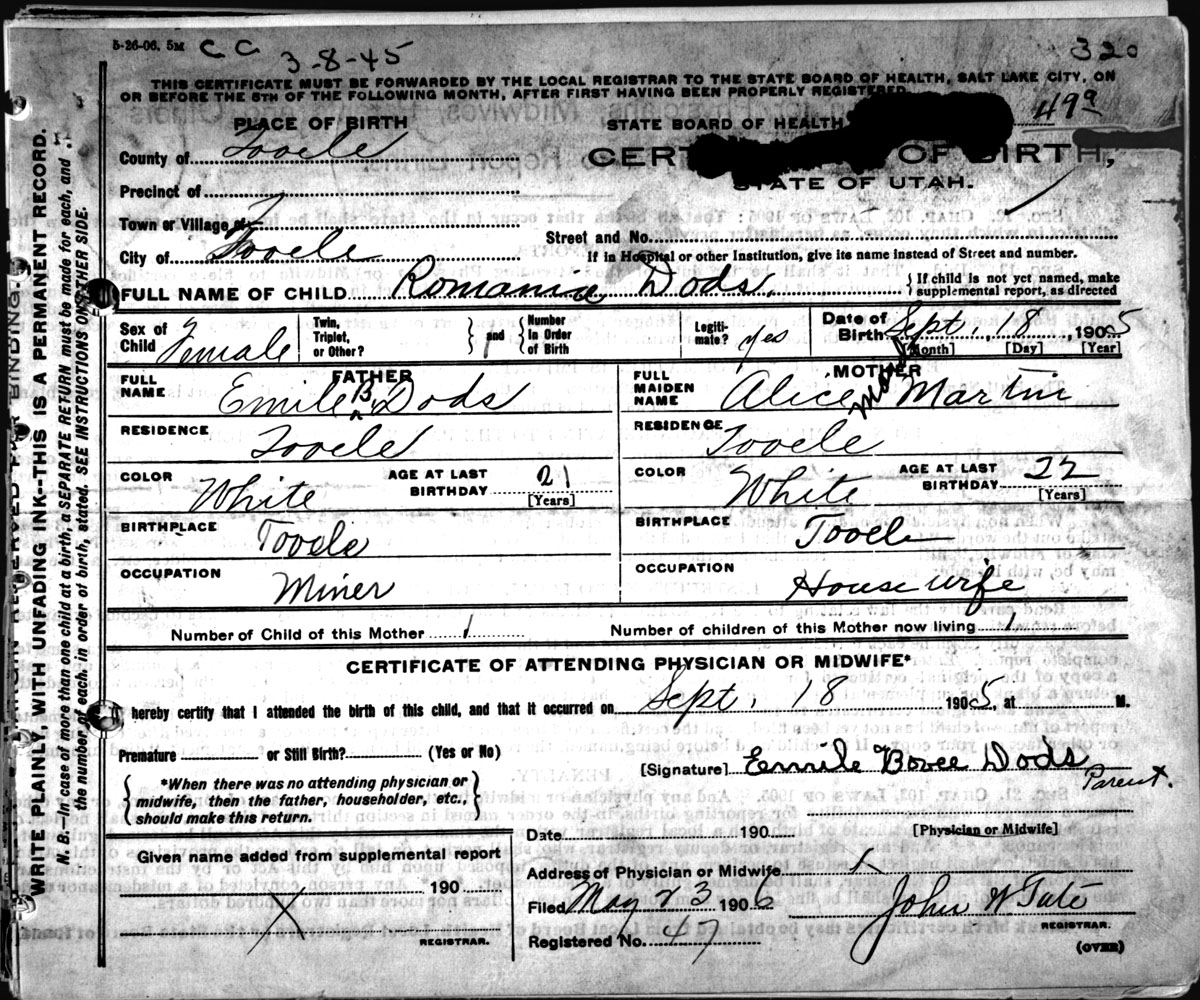 5-26-06. 5M C C 3-8-45 320
THIS CERTIFICATE MUST BE FORWARDED BY THE LOCAL REGISTRAR TO THE STATE BOARD OF HEALTH, SALT LAKE CITY, ON
OR BEFORE THE 5TH OF THE FOLLOWING MONTH, AFTER FIRST HAVING BEEN PROPERLY REGISTERED.
PLACE OF BIRTH
County of Tooele
Precinct of
Town or Village of
City of Tooele
STATE BOARD OF HEALTH 499
CERT OF BIRTH,
STATE OF UTAH.
Street and No.
If in Hospital or other Institution, give its name instead of Street and number.
FULL NAME OF CHILD Romania Dods. {If child is not yet named, make
supplemental report, as directed
Sex of Child Female
Twin, Triplet, or Other? } and { Number in Order of Birth
Legitimate? yes
Date of Birth Sept. 18, 1905
[Month] [Day] [Year]
FATHER
FULL NAME Emile B. Dods
RESIDENCE Tooele
COLOR White AGE AT LAST BIRTHDAY 21
[Years]
BIRTHPLACE Tooele
OCCUPATION Miner
MOTHER
FULL MAIDEN NAME Alice Martin
RESIDENCE Tooele
COLOR White AGE AT LAST BIRTHDAY 22
[Years]
BIRTHPLACE Tooele
OCCUPATION House wife
Number of Child of this Mother 1 Number of children of this Mother now living 1
CERTIFICATE OF ATTENDING PHYSICIAN OR MIDWIFE*
I hereby certify that I attended the birth of this child, and that it occurred on Sept. 18 1905, at M.
Premature or Still Birth? (Yes or No)
*When there was no attending physician or
midwife, then the father, householder, etc.,
should make this return.
[Signature] Emile Bovee Dods
Parent.
[Physician or Midwife]
Date 190
Given name added from supplemental report
190
X
REGISTRAR.
Address of Physician or Midwife X
Filed May 23 1906 John W Tate
REGISTRAR.
Registered No. 47
(OVER)
WRITE PLAINLY, WITH UNFADING INK--THIS IS A PERMANENT RECORD.
N. B.--In case of more than one child at a birth, a SEPARATE RETURN must be made for each, and
the number of each, in order of birth, stated. SEE INSTRUCTIONS ON OTHER SIDE.